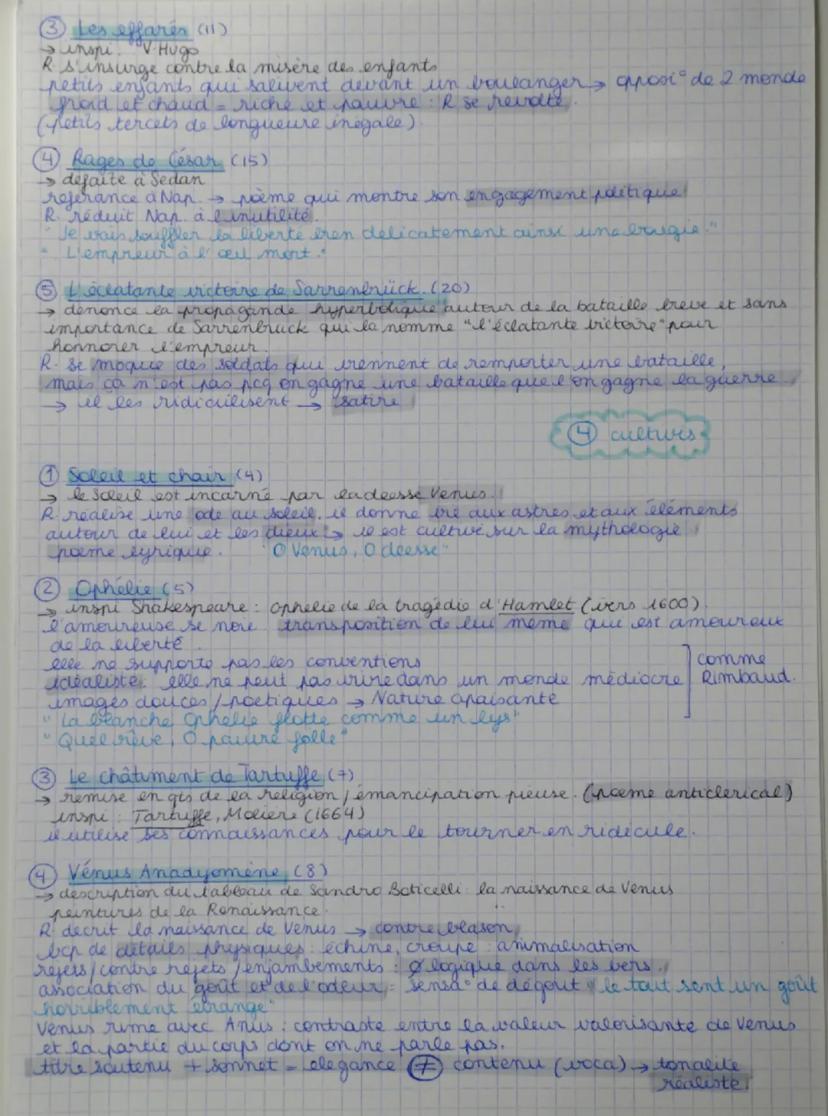 ③ Les effarés (11)
→ inspi : V. Hugo
R s'insurge contre la misère des enfants
petits enfants qui salivent devant un boulanger → opposi° de 2 monde
froid et chaud = riche et pauvre : R se révolte.
(petits tercets de longueure inégale)
④ Rages de César (15)
→ défaite à Sedan
référance à Nap. → poème qui montre son engagement politique
R. réduit Nap. à l'inutilité.
"Je vais souffler la liberté bien délicatement ainsi une bougie."
"L'empreur à l'œil mort."
⑤ L'éclatante victoire de Sarrenbrück. (20)
→ dénonce la propagande hyperbolique autour de la bataille brève et sans
importance de Sarrenbruck qui la nomme "l'éclatante victoire" pour
honnorer l'empreur.
R. se moque des soldats qui viennent de remporter une bataille,
mais ça n'est pas pcq on gagne une bataille que l'on gagne la guerre
→ il les ridiculisent → satire
④ cultures
① Soleil et chair (4)
→ le soleil est incarné par la déesse Venus.
R. réalise une ode au soleil, il donne vie aux astres et aux éléments
autour de lui et les dieux → il est cultivé sur la mythologie
poème lyrique. "O Venus, O déesse"
② Ophélie (5)
→ inspi Shakespeare : Ophélie de la tragédie d'Hamlet (vers 1600)
l'amoureuse se noie transposition de lui même qui est amoureux
de la liberté.
elle ne supporte pas les conventions
idéaliste. elle ne peut pas vivre dans un monde médiocre
images douces/poétiques → Nature apaisante
comme
Rimbaud.
"La blanche Ophélie flotte comme un lys"
"Quel rêve, O pauvre folle"
③ Le châtiment de Tartuffe (7)
→ remise en qts de la religion / émancipation pieuse. (poème anticlérical)
inspi : Tartuffe, Molière (1664)
il utilise ses connaissances pour le tourner en ridicule.
④ Vénus Anadyomène (8)
→ description du tableau de Sandro Boticelli : la naissance de Venus
peintures de la Renaissance.
R décrit la naissance de Venus → contre blason
bcp de détails physiques : échine, croupe : animalisation
rejets/contre rejets/enjambements : Ø logique dans les vers.
association du goût et de l'odeur = sensa° de dégout "le tout sent un goût
horriblement étrange"
Venus rime avec Anus : contraste entre la valeur valorisante de Venus
et la partie du corps dont on ne parle pas.
titre soutenu + sonnet = élégance ≠ contenu (voca) → tonalité
réaliste